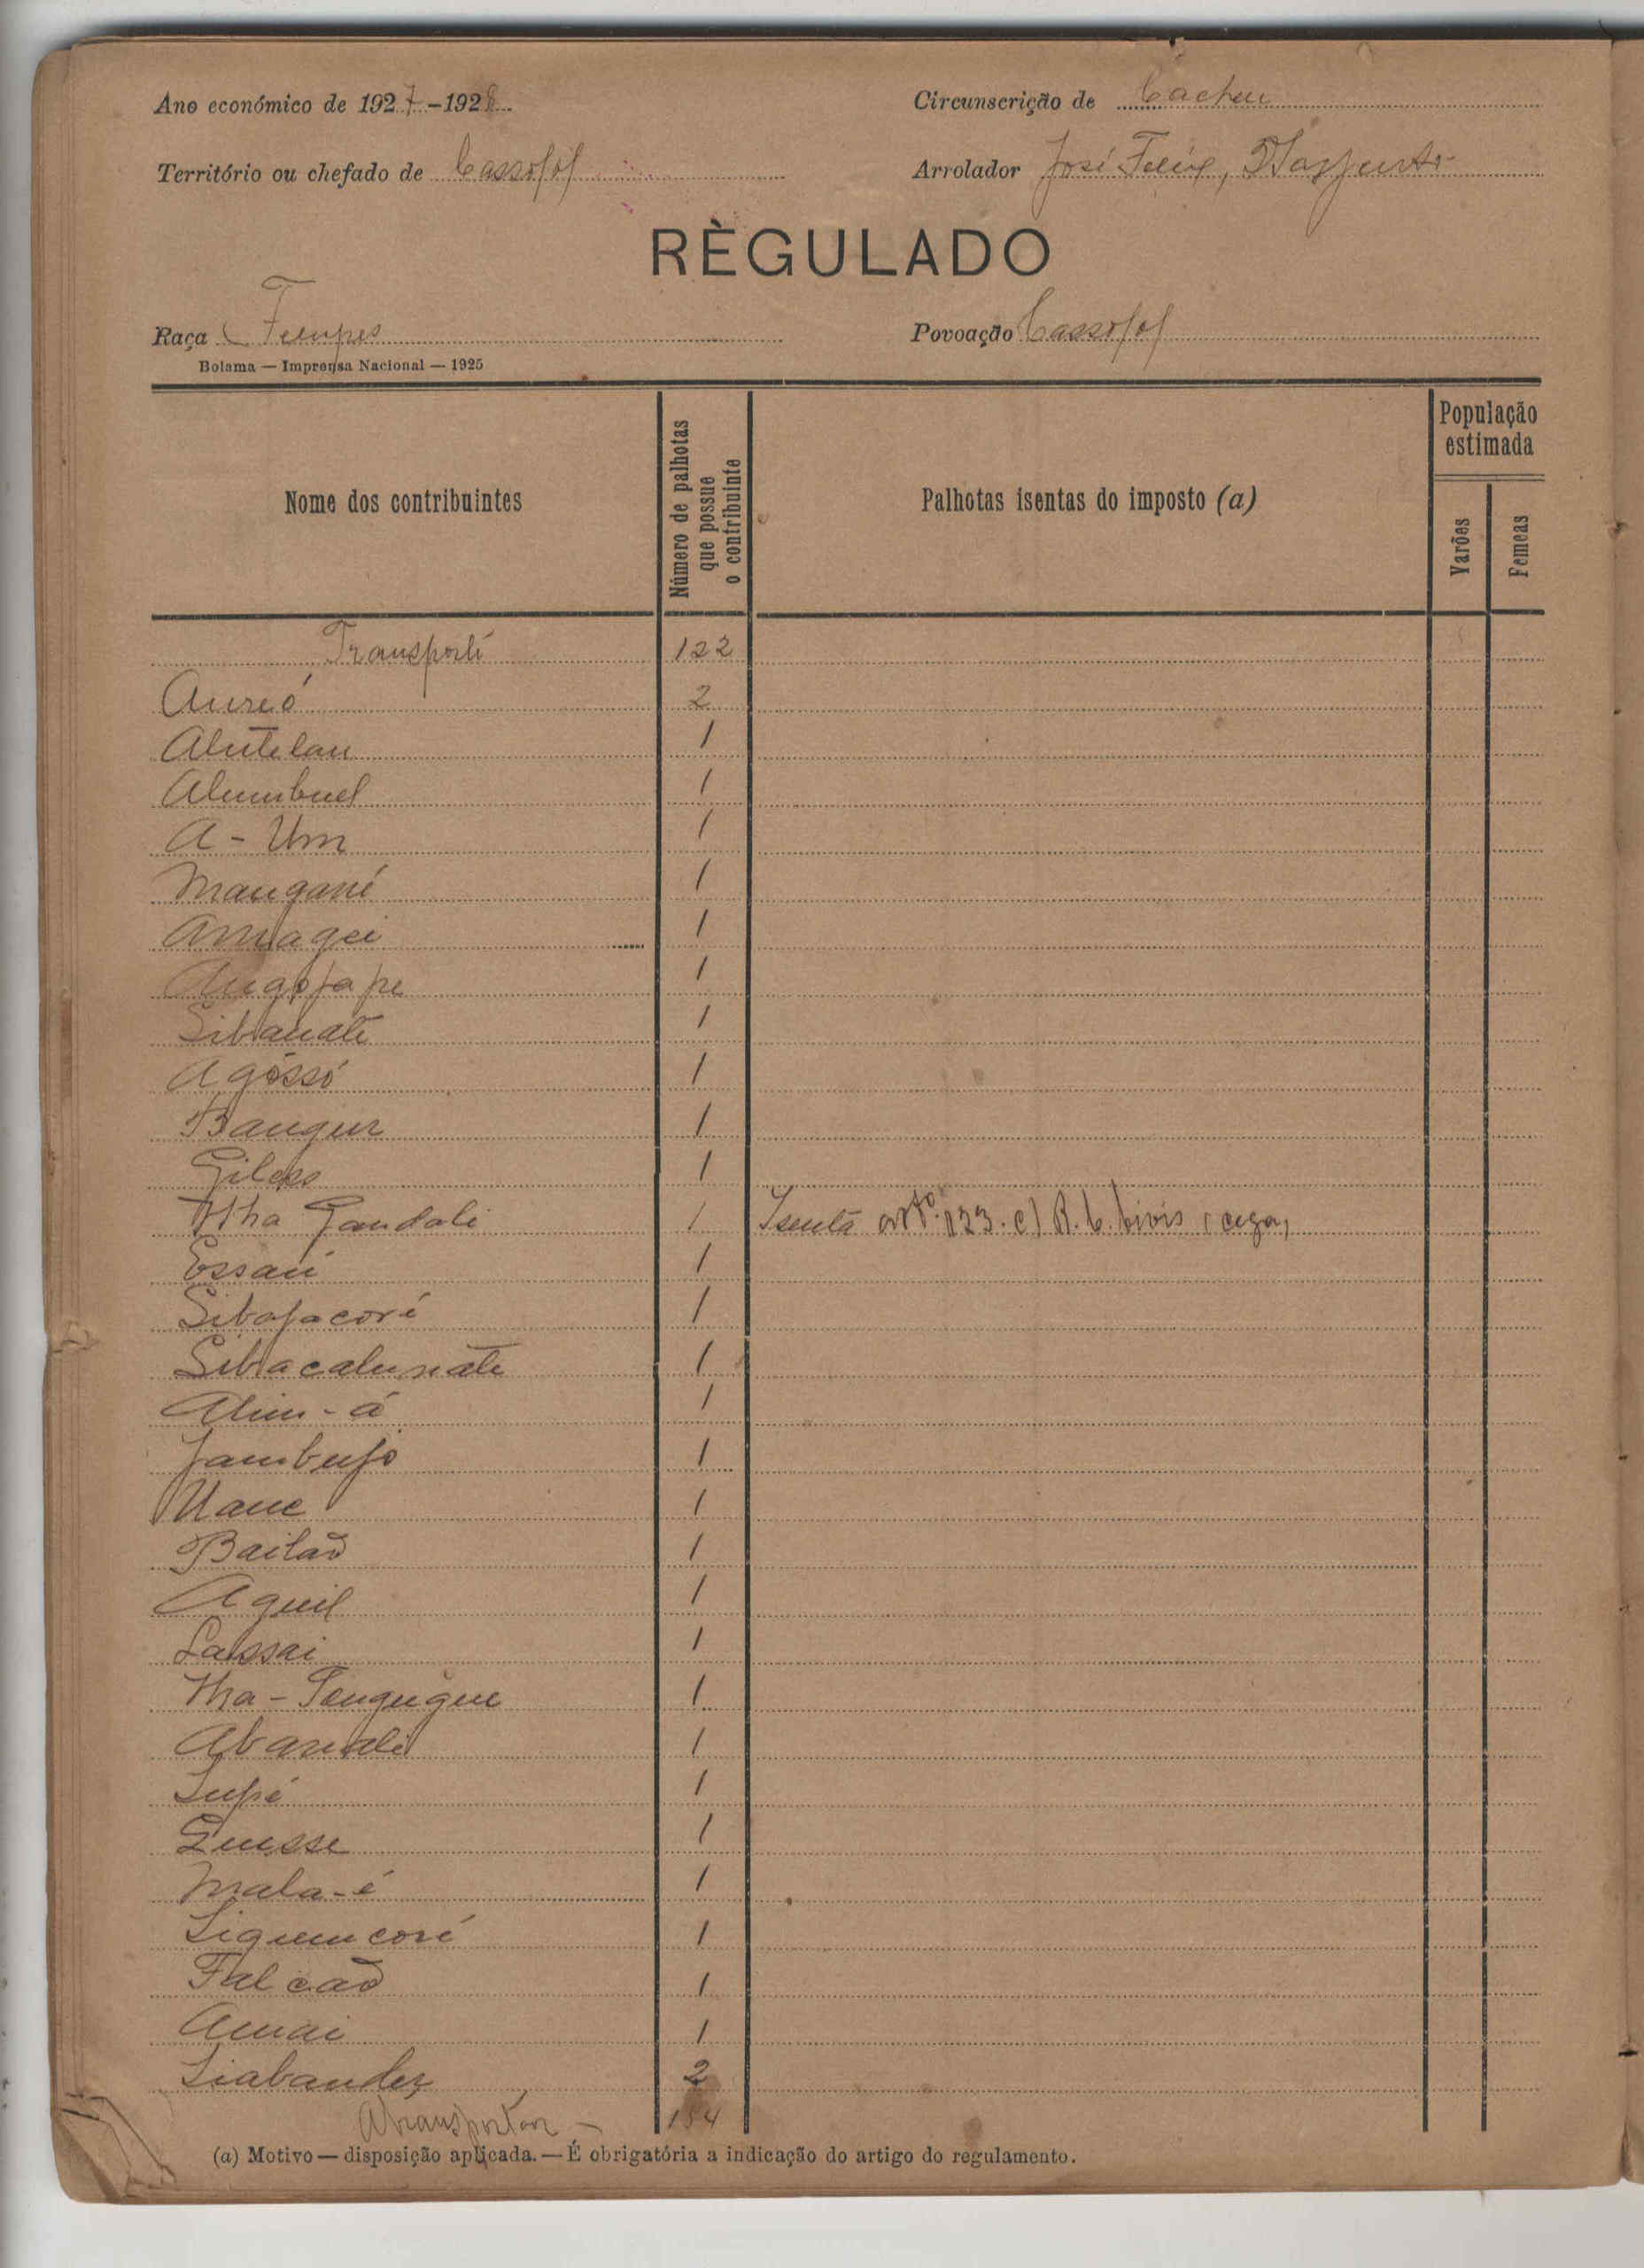 Ano económico de 1927-1928
Circunscrição de Cacheu
Território ou chefado de Cassofof
Arrolador José Felix,
RÈGULADO
Raça Felupes
Povoação Cassofof
Bolama — Imprensa Nacional — 1925
Nome dos contribuintes
Número de palhotas que possue o contribuinte
Palhotas isentas do imposto (a)
População estimada
Varões
Femeas
Transporte 122
Aureó 2
Alutelau 1
Alumbuel 1
A - Um 1
Mangané 1
Amagei 1
Augofape 1
Sibanate 1
Agóssó 1
Baugur 1
Gilebo 1
Itha Gandali 1 Isenta artº. 123. c) R. C. Civis (cega)
Essaú 1
Sibafacoré 1
Sibacalunate 1
Alim - á 1
Jambufo 1
Uane 1
Bailaõ 1
Aguil 1
Lassai 1
Itha - Sengugue 1
Abanali 1
Supé 1
Quesse 1
Mala - é 1
Siquencoré 1
Falcaõ 1
Amai 1
Siabander 2
A transportar - 154
(a) Motivo — disposição aplicada. — É obrigatória a indicação do artigo do regulamento.